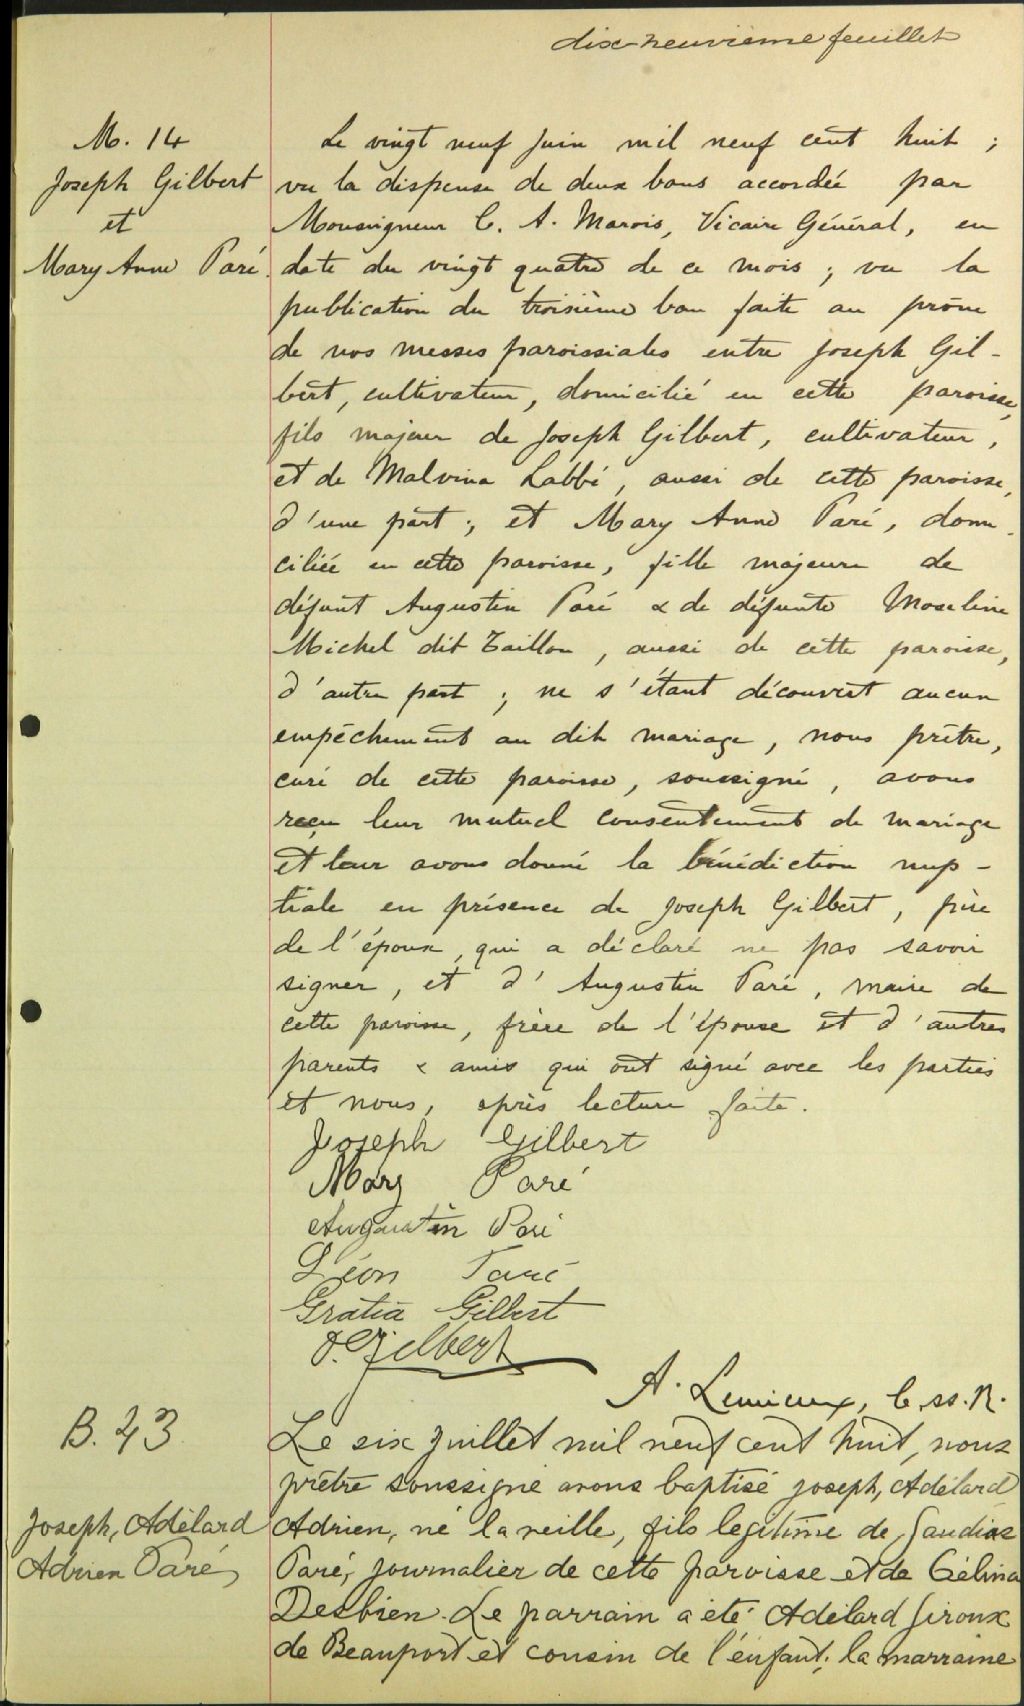 dix-neuvième feuillet
M. 14
Joseph Gilbert
et
Mary Anne Paré.
Le vingt neuf juin mil neuf cent huit ;
vu la dispense de deux bans accordée par
Monseigneur C. A. Marois, Vicaire Général, en
date du vingt quatre de ce mois ; vu la
publication du troisième ban faite au prône
de nos messes paroissiales entre Joseph Gil-
bert, cultivateur, domicilié en cette paroisse,
fils majeur de Joseph Gilbert, cultivateur,
et de Malvina Labbé, aussi de cette paroisse,
d'une part ; et Mary Anne Paré, domi-
ciliée en cette paroisse, fille majeure de
défunt Augustin Paré & de défunte Moseline
Michel dit Taillon, aussi de cette paroisse,
d'autre part ; ne s'étant découvert aucun
empêchement au dit mariage, nous prêtre,
curé de cette paroisse, soussigné, avons
reçu leur mutuel consentement de mariage
et leur avons donné la bénédiction nup-
tiale en présence de Joseph Gilbert, père
de l'époux, qui a déclaré ne pas savoir
signer, et d'Augustin Paré, maire de
cette paroisse, frère de l'épouse et d'autres
parents & amis qui ont signé avec les parties
et nous, après lecture faite.
Joseph Gilbert
Mary Paré
Augustin Paré
Léon Paré
Gratia Gilbert
O. Gilbert
A. Lemieux, C. ss. R.
B. 23
Joseph, Adélard
Adrien Paré,
Le six juillet mil neuf cent huit, nous
prêtre soussigné avons baptisé Joseph, Adélard
Adrien, né la veille, fils légitime de Gaudias
Paré, journalier de cette paroisse et de Célina
Desbien. Le parrain a été Adélard Giroux
de Beauport et cousin de l'enfant; la marraine